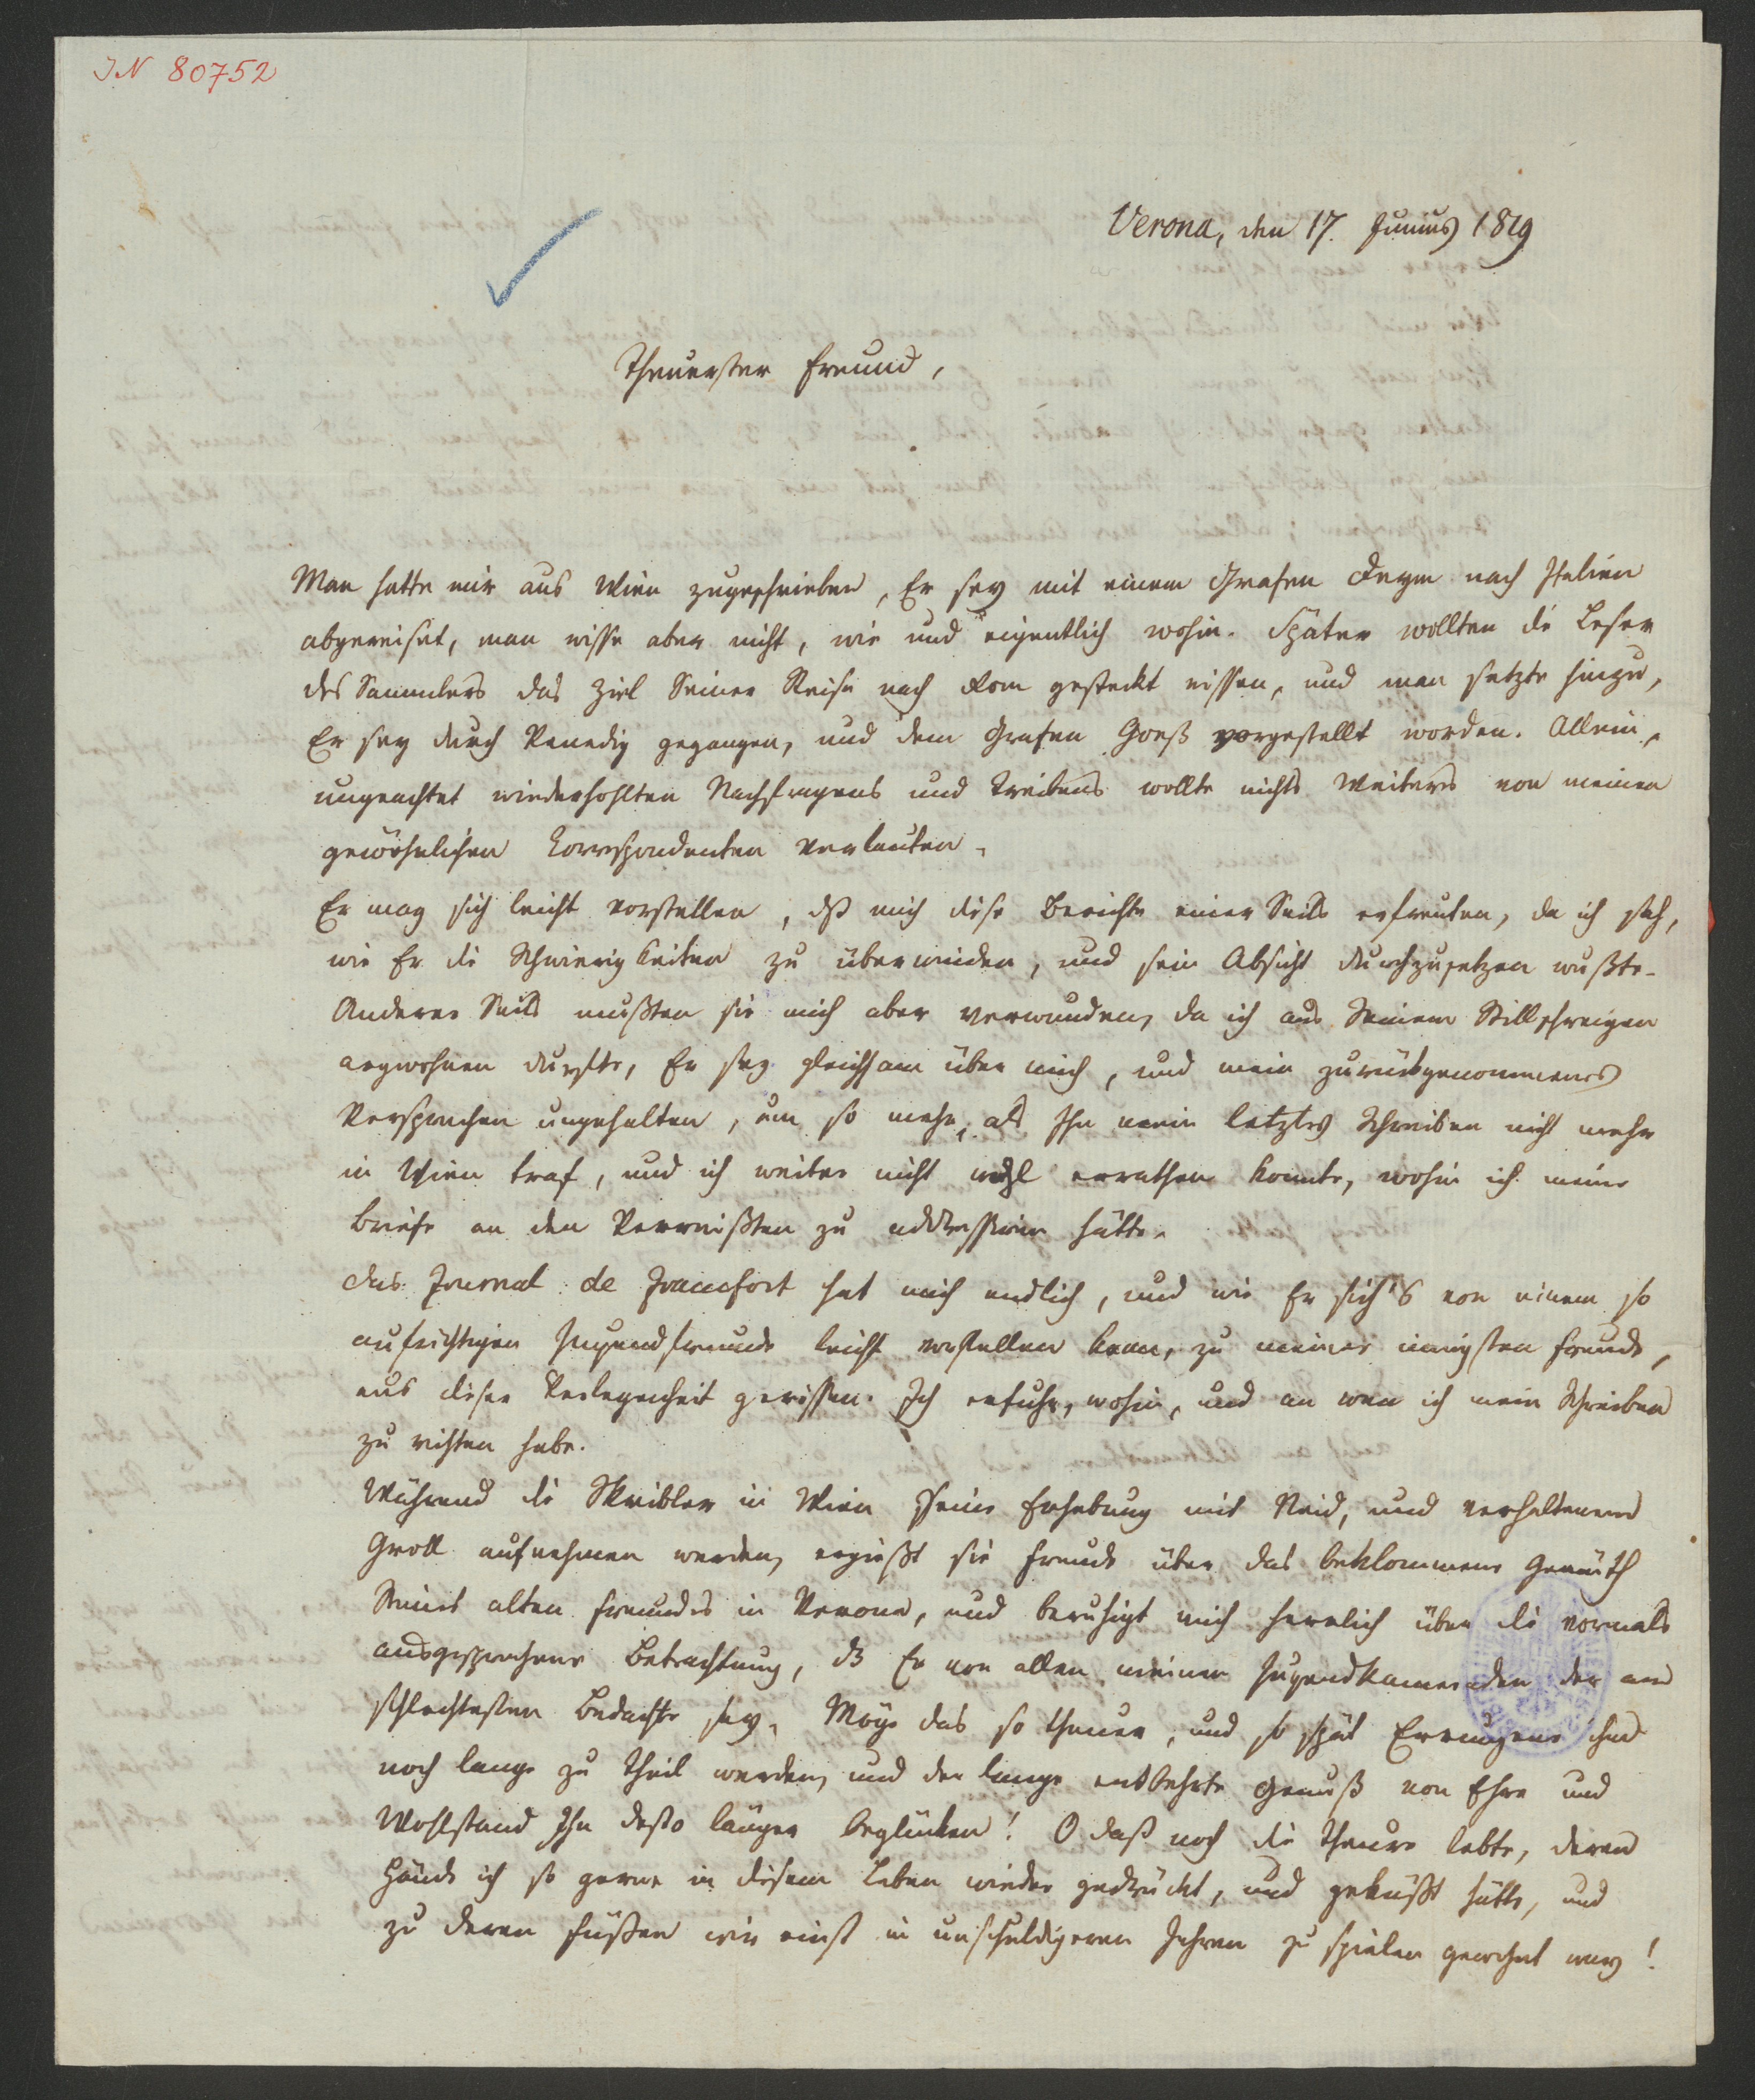 IN 80752
Verona, den 17. Junius 1819
Theuerster Freund,
Man hatte mir aus Wien zugeschrieben, Er sey mit einem Grafen Deym nach Italien
abgereiset, man wisse aber nicht, wie und eigentlich wohin. Später wollten die Leser
des Sammlers das Ziel Seiner Reise nach Rom gesteckt wissen, und man setzte hinzu,
Er sey durch Venedig gegangen, und dem Grafen Goeß vorgestellt worden. Allein,
ungeachtet wiederhohlten Nachfragens und Treibens wollte nichts Weiters von meinen
gewöhnlichen Korrespondenten verlauten.
Er mag sich leicht vorstellen, dß mich diese Berichte einer Seits erfreuten, da ich sah,
wie Er die Schwierigkeiten zu überwinden, und sein Absicht durchzusetzen wußte.
Anderer Seits mußten sie mich aber verwunden, da ich aus Seinem Stillschweigen
argwohnen durfte, Er sey gleichsam über mich, und mein zurückgenommenes
Versprechen ungehalten, um so mehr, als Ihn mein letztes Schreiben nicht mehr
in Wien traf, und ich weiter nicht wohl errathen konnte, wohin ich meine
Briefe an den Vermißten zu addressiren hätte.
Das Journal de Francfort hat mich endlich, und wie Er sich's von einem so
aufrichtigen Jugendfreunde leicht vorstellen kann, zu meiner innigsten Freude,
aus dieser Verlegenheit gerissen. Ich erfuhr, wohin, und an wen ich mein Schreiben
zu richten habe.
Während die Skribler in Wien Seine Erhebung mit Neid, und verhaltenem
Groll aufnehmen werden, ergießt sie Freude über das beklommene Gemüth
Seines alten Freundes in Verona, und beruhigt mich herrlich über die vormals
ausgesprochene Betrachtung, dß Er von allen meinen Jugendkameraden der am
schlechtesten Bedachte sey. Möge das so theuer, und so spät Errungene ihm
noch lange zu Theil werden, und der lange entbehrte Genuß von Ehre und
Wohlstand Ihn desto länger beglücken! O daß noch die Theure lebte, deren
Hände ich so gerne in diesem Leben wieder gedrückt, und geküßt hätte, und
zu deren Füßen wir einst in unschuldigeren Jahren zu spielen gewohnt war!